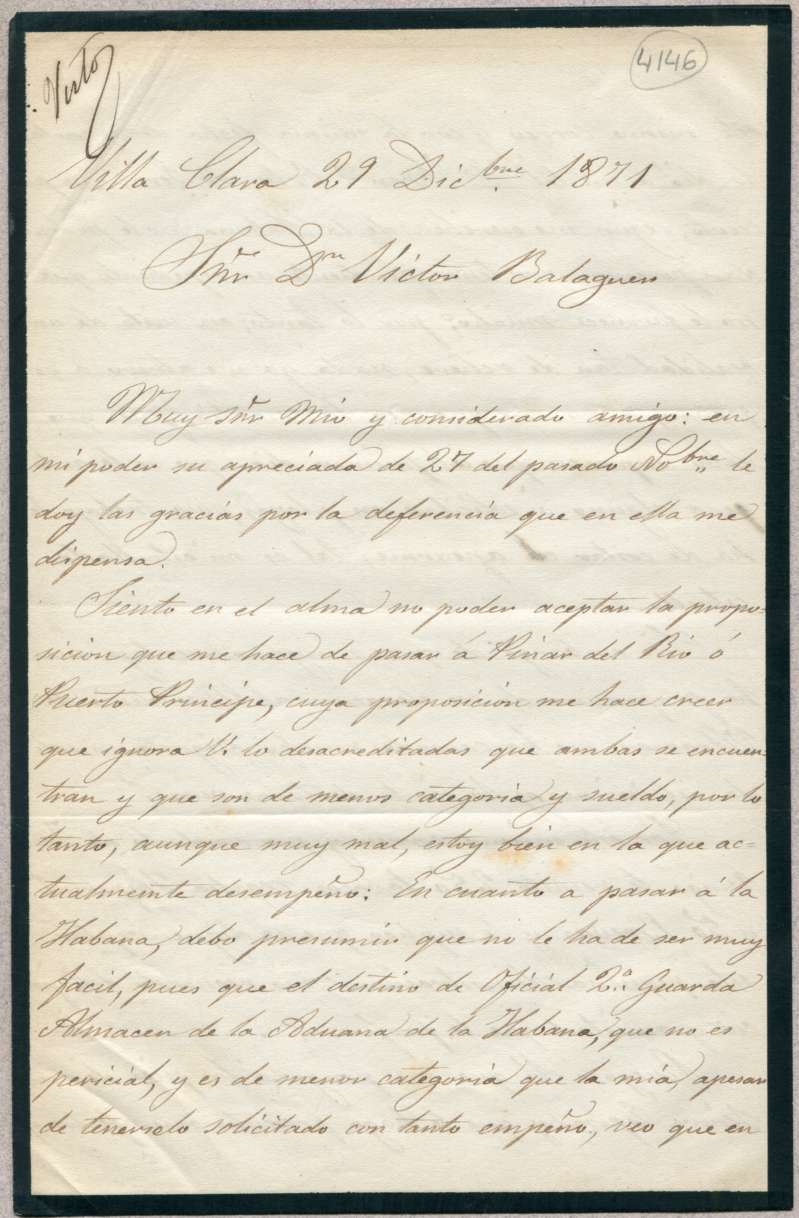 Visto
4146
Villa Clara 29 Dicbre 1871
Sñr Dn Victor Balaguer
Muy sñr Mio y considerado amigo: en
mi poder su apreciada de 27 del pasado Nobre le
doy las gracias por la deferencia que en ella me
dispensa.
Siento en el alma no poder aceptar la propo-
sicion que me hace de pasar á Pinar del Rio ó
Puerto Principe, cuya proposicion me hace creer
que ignora V. lo desacreditadas que ambas se encuen-
tran y que son de menos categoria y sueldo, por lo
tanto, aunque muy mal, estoy bien en la que ac-
tualmente desempeño: En cuanto a pasar á la
Habana, debo presumir que no le ha de ser muy
facil, pues que el destino de Oficial 2.º Guarda
Almacen de la Aduana de la Habana, que no es
pericial, y es de menor categoria que la mia, apesar
de tenerselo solicitado con tanto empeño, veo que en